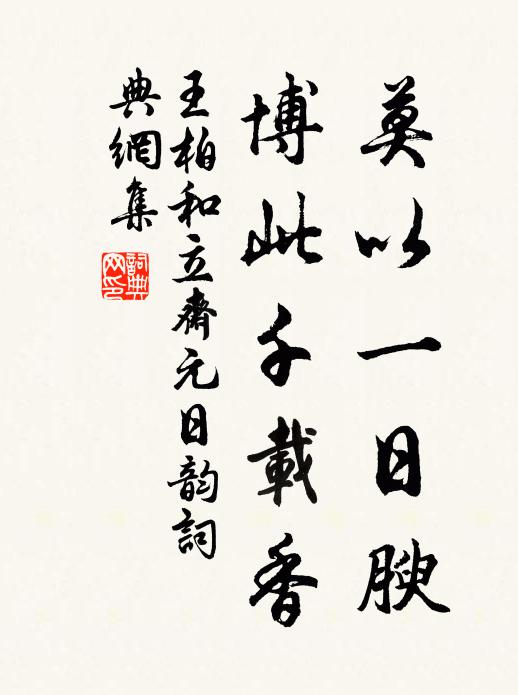 莫以一日腴
博此千載香
王柏和立齋元日韵詞
典網集
詞典网印